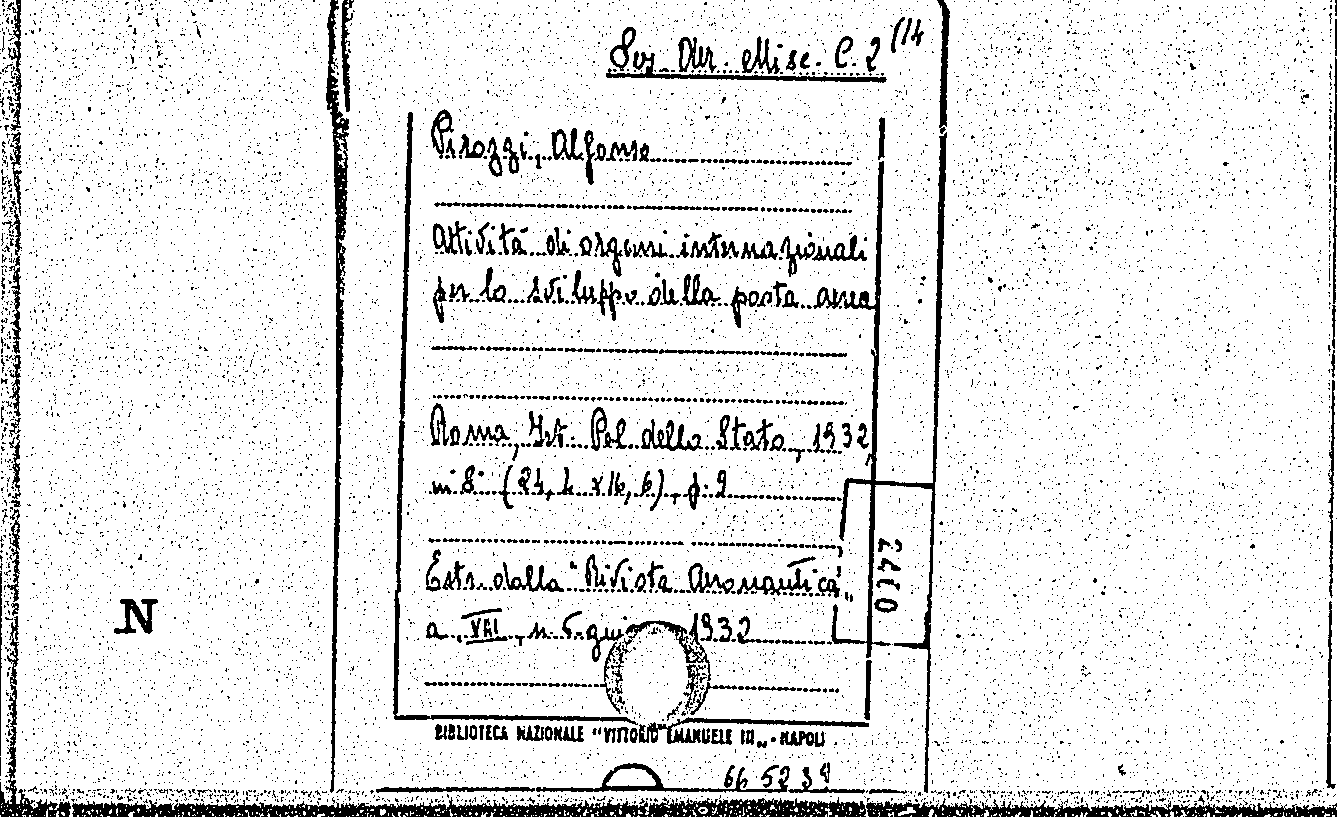 Sez. Aer. Misc. C. 2 (14
Pirozzi, Alfonso
Attività di organi internazionali
per lo sviluppo della posta aerea
Roma, Ist. Pol. dello Stato, 1932,
in 8° (24, 2 x 16, 6), p. 9
Estr. dalla "Rivista Aeronautica"
a. VIII, n. 6. 1932
2410
N
BIBLIOTECA NAZIONALE "VITTORIO EMANUELE III„ - NAPOLI
66 52 39